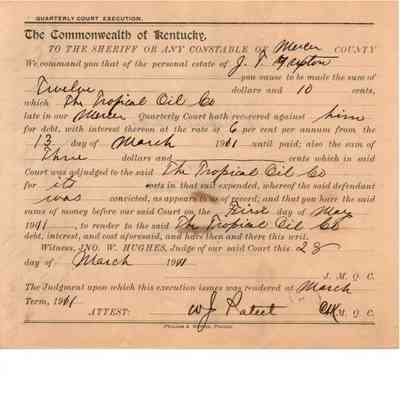 QUARTERLY COURT EXECUTION.
The Commonwealth of Kentucky,
TO THE SHERIFF OR ANY CONSTABLE OF Mercer COUNTY
We command you that of the personal estate of J. T.
you cause to be made the sum of
Twelve dollars and 10 cents,
which The Tropical Oil Co
late in our Mercer Quarterly Court hath recovered against him
for debt, with interest thereon at the rate of 6 per cent per annum from the
13 day of March 1911 until paid; also the sum of
Three dollars and cents which in said
Court was adjudged to the said The Tropical Oil Co
for its costs in that suit expended, whereof the said defendant
was convicted, as appears to us of record; and that you have the said
sums of money before our said Court on the First day of May
1911, to render to the said The Tropical Oil Co
debt, interest, and cost aforesaid, and have then and there this writ.
Witness, JNO. W. HUGHES, Judge of our said Court this 28
day of March 1911
J. M. Q. C.
The Judgment upon which this execution issues was rendered at March
Term, 1911
ATTEST: W J Clk M. Q. C.